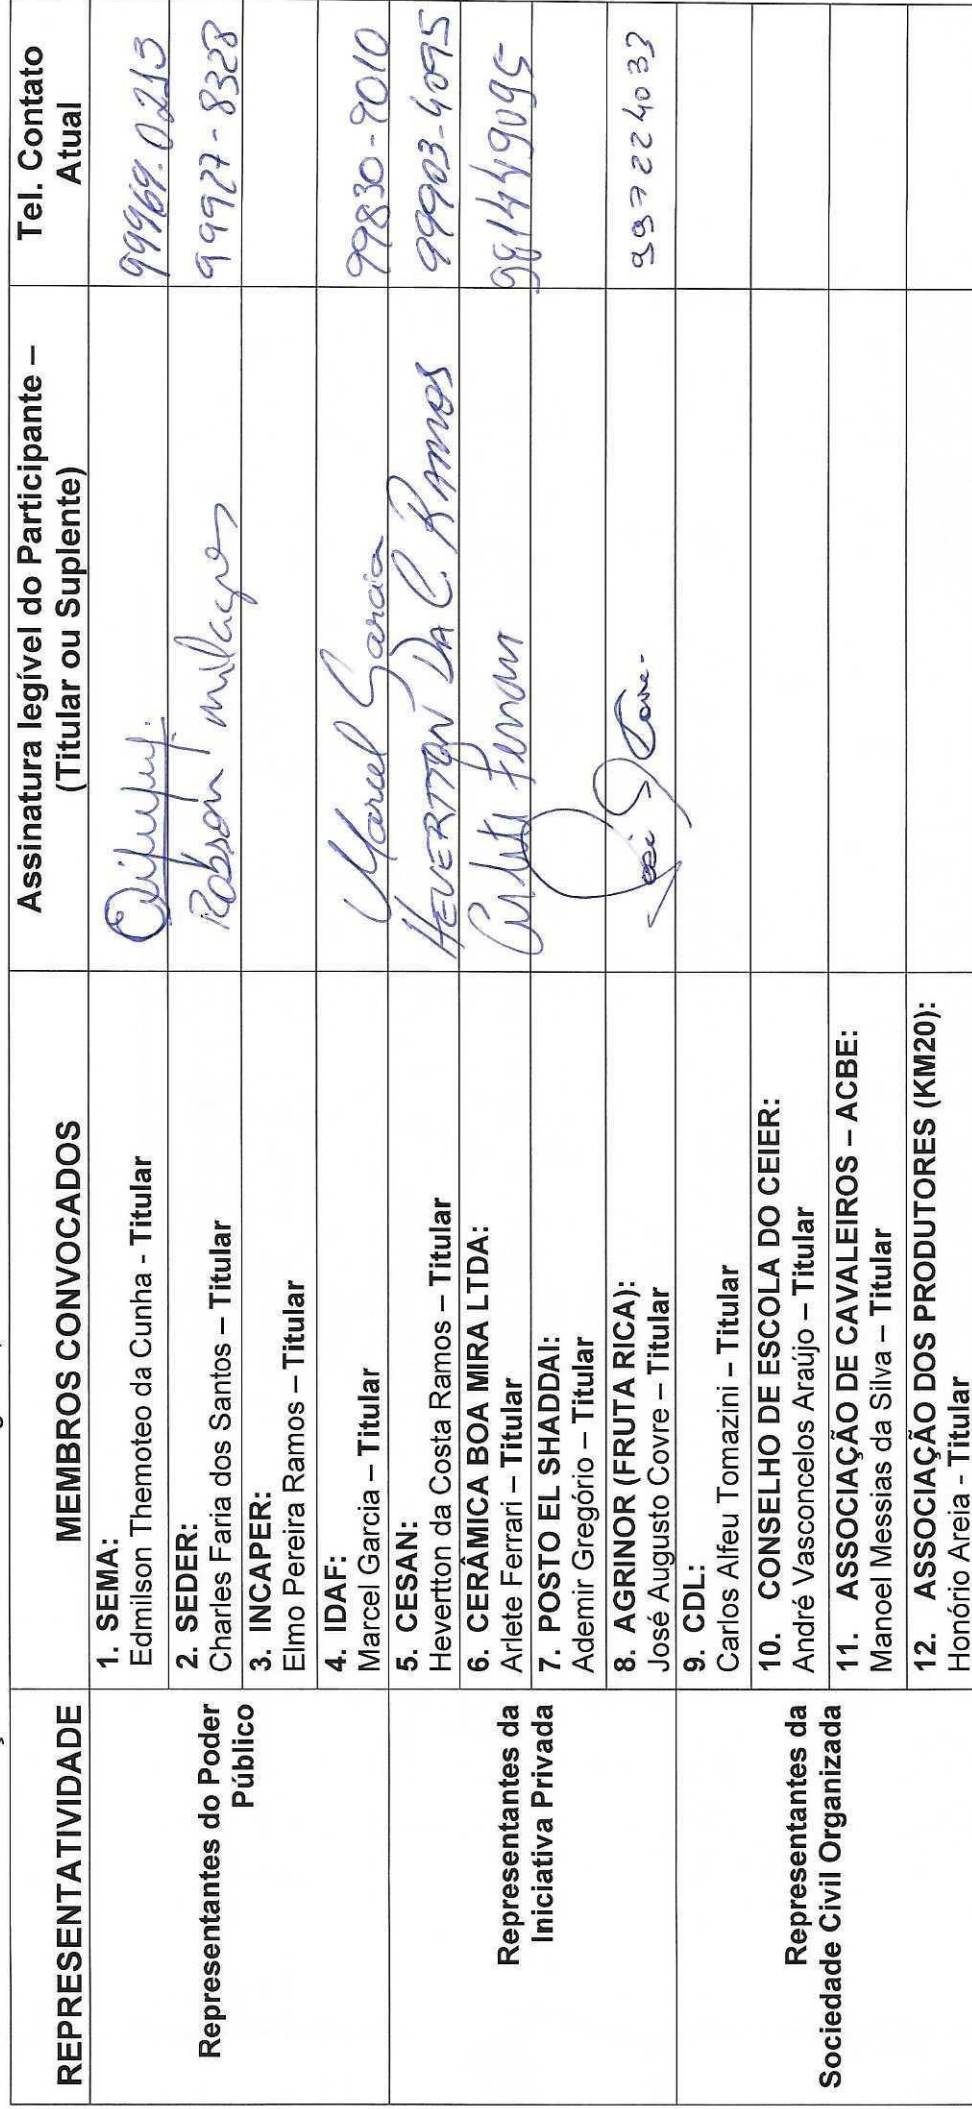 REPRESENTATIVIDADE
MEMBROS CONVOCADOS
Assinatura legível do Participante –
(Titular ou Suplente)
Tel. Contato
Atual
Representantes do Poder
Público
1. SEMA:
Edmilson Themoteo da Cunha - Titular
99969.0213
2. SEDER:
Charles Faria dos Santos – Titular
Robson milagres
99927-8328
3. INCAPER:
Elmo Pereira Ramos – Titular
4. IDAF:
Marcel Garcia – Titular
Marcel Garcia
99830-9010
Representantes da
Iniciativa Privada
5. CESAN:
Hevertton da Costa Ramos – Titular
HEVERTTON DA C. RAMOS
99903-4095
6. CERÂMICA BOA MIRA LTDA:
Arlete Ferrari – Titular
Arlete Ferrari
981449095
7. POSTO EL SHADDAI:
Ademir Gregório – Titular
8. AGRINOR (FRUTA RICA):
José Augusto Covre – Titular
Covre
997224033
Representantes da
Sociedade Civil Organizada
9. CDL:
Carlos Alfeu Tomazini – Titular
10. CONSELHO DE ESCOLA DO CEIER:
André Vasconcelos Araújo – Titular
11. ASSOCIAÇÃO DE CAVALEIROS – ACBE:
Manoel Messias da Silva – Titular
12. ASSOCIAÇÃO DOS PRODUTORES (KM20):
Honório Areia - Titular